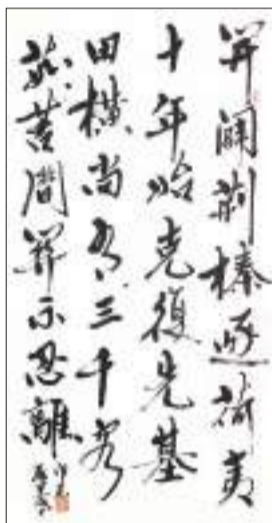 開闢荊榛逐荷夷
十年始克復先基
田橫尚有三千客
茹苦間關不忍離